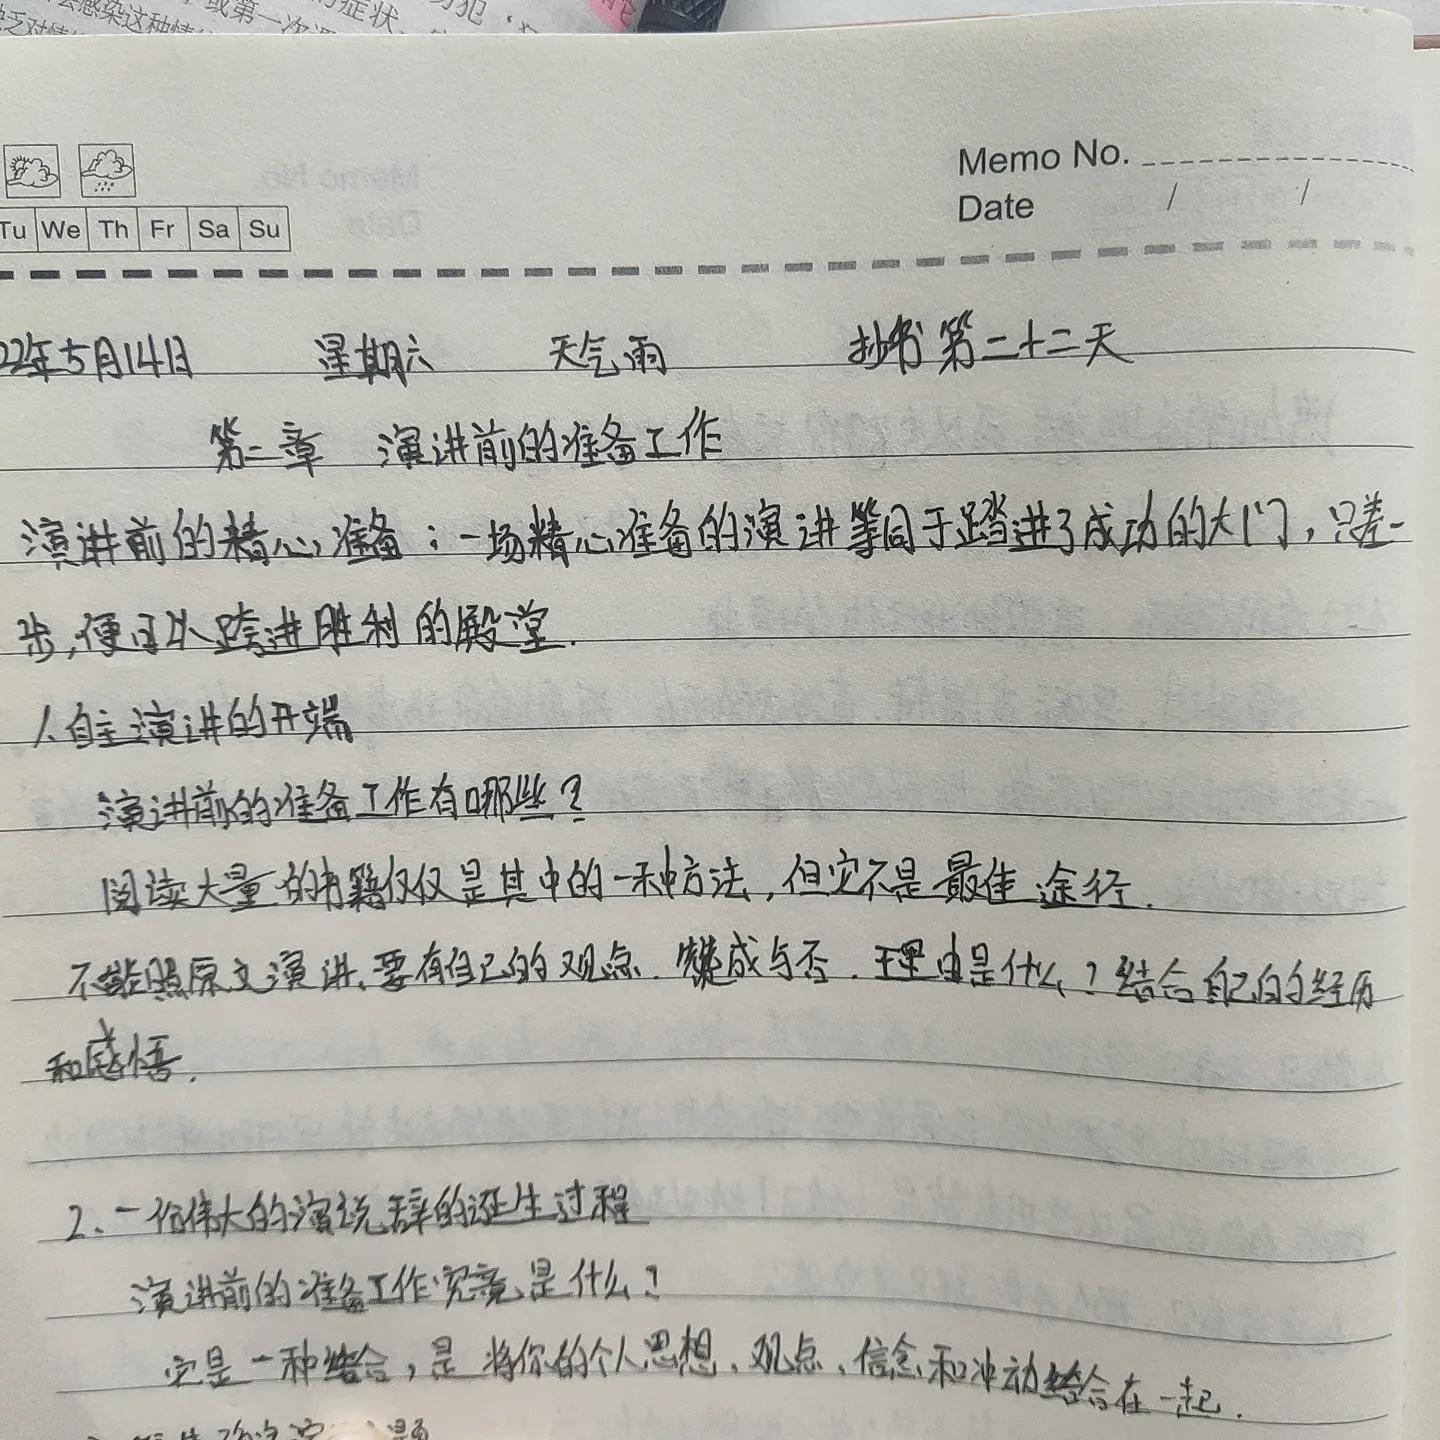 会感染这种情
或第一次
的症状
Memo No.
Date / /
Tu We Th Fr Sa Su
22年5月14日 星期六 天气雨 抄书第二十二天
第二章 演讲前的准备工作
演讲前的精心准备：一场精心准备的演讲等同于踏进了成功的大门，只差一
步，便可以跨进胜利的殿堂.
1.自主演讲的开端
演讲前的准备工作有哪些？
阅读大量的书籍仅仅是其中的一种方法，但它不是最佳途径.
不能照原文演讲、要有自己的观点.赞成与否.理由是什么？结合自己的经历
和感悟.
2、一份伟大的演说辞的诞生过程
演讲前的准备工作究竟是什么？
它是一种结合，是将你的个人思想、观点、信念和冲动结合在一起.